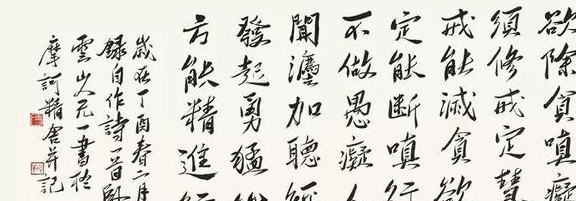 欲除貪嗔癡
須修戒定慧
戒能滅貪欲
定能斷嗔行
不做愚癡人
聞塵加聽經
發起勇猛
方能精進行
歲在丁酉春二月
錄自作詩一首臥
雲山人元一書於
摩訶精舍并記